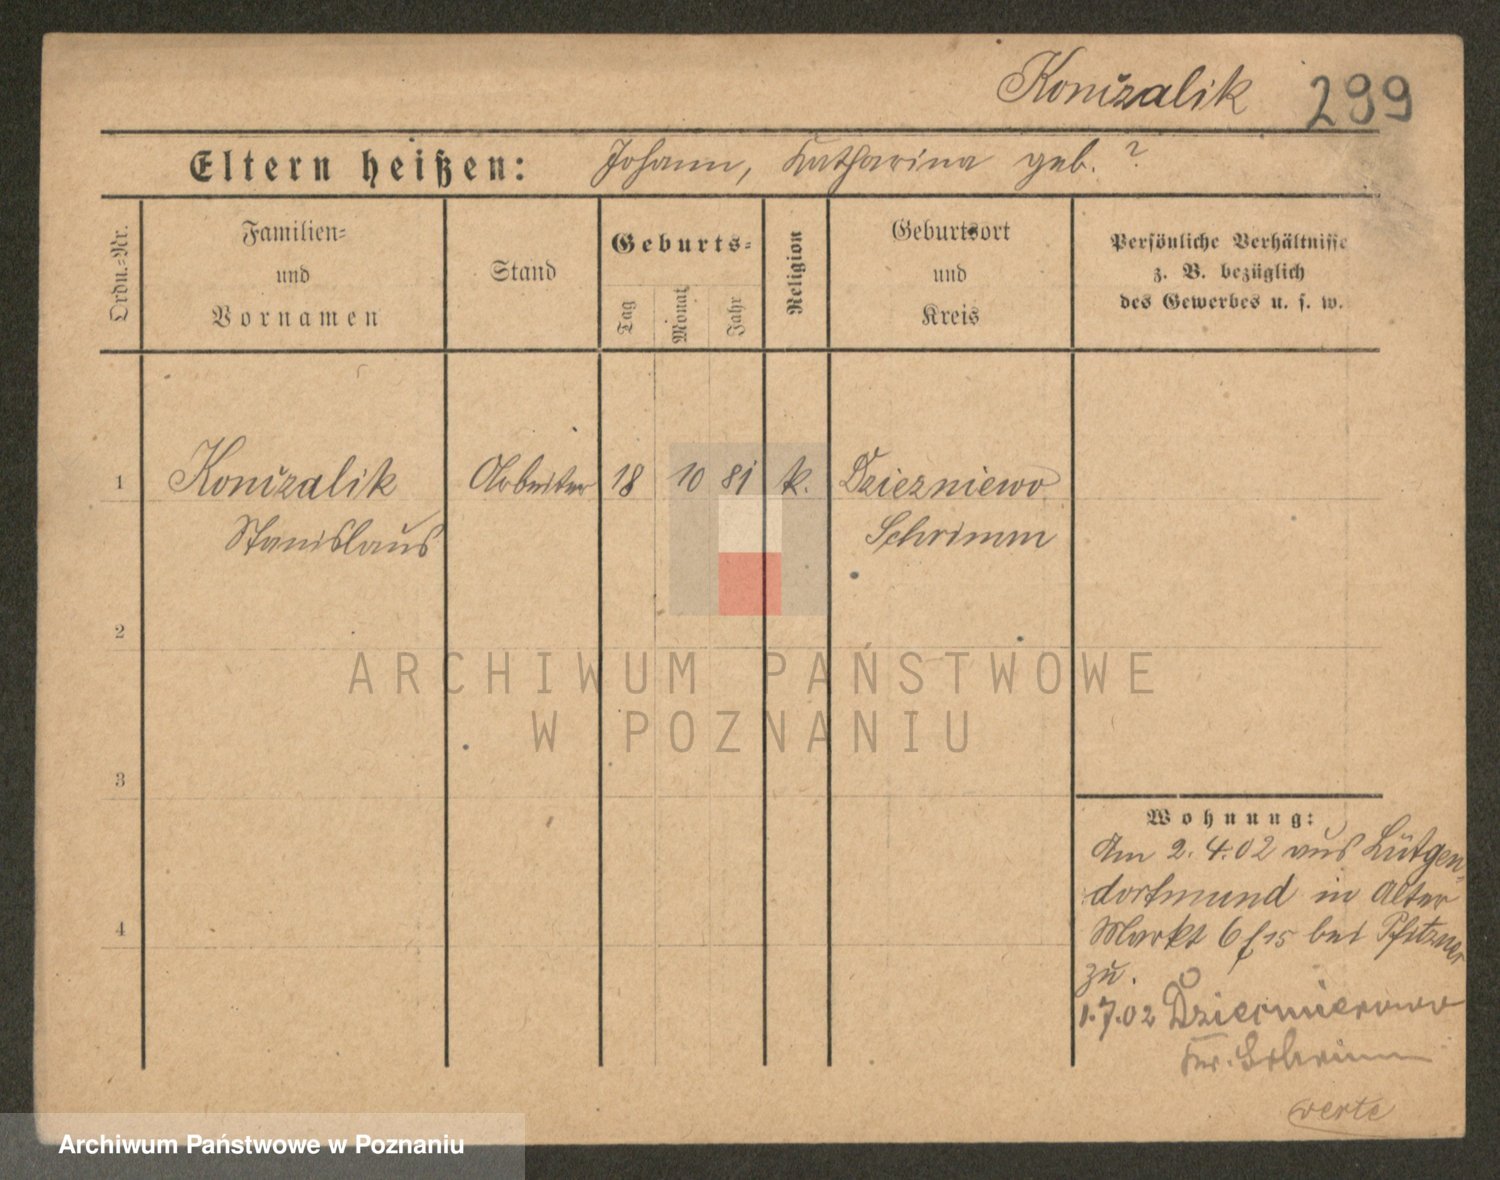 Konizalik 299
Eltern heißen: Johann, Katharina geb. ?
Ordn.-Nr.
Familien-
und
Vornamen
Stand
Geburts-
Tag
Monat
Jahr
Religion
Geburtsort
und
Kreis
Persönliche Verhältnisse
z. B. bezüglich
des Gewerbes u. s. w.
1 Konizalik Arbeiter 18 10 81 k. Dziezniewo
Stanislaus Schrimm
2
ARCHIWUM PAŃSTWOWE
W POZNANIU
3
Wohnung:
Am 2. 4. 02 aus Lütgen-
dortmund in Alter
4
Markt 6 f 15 bei Pfitzner
zu.
1.7.02
Kr. Schrimm
verte
Archiwum Państwowe w Poznaniu